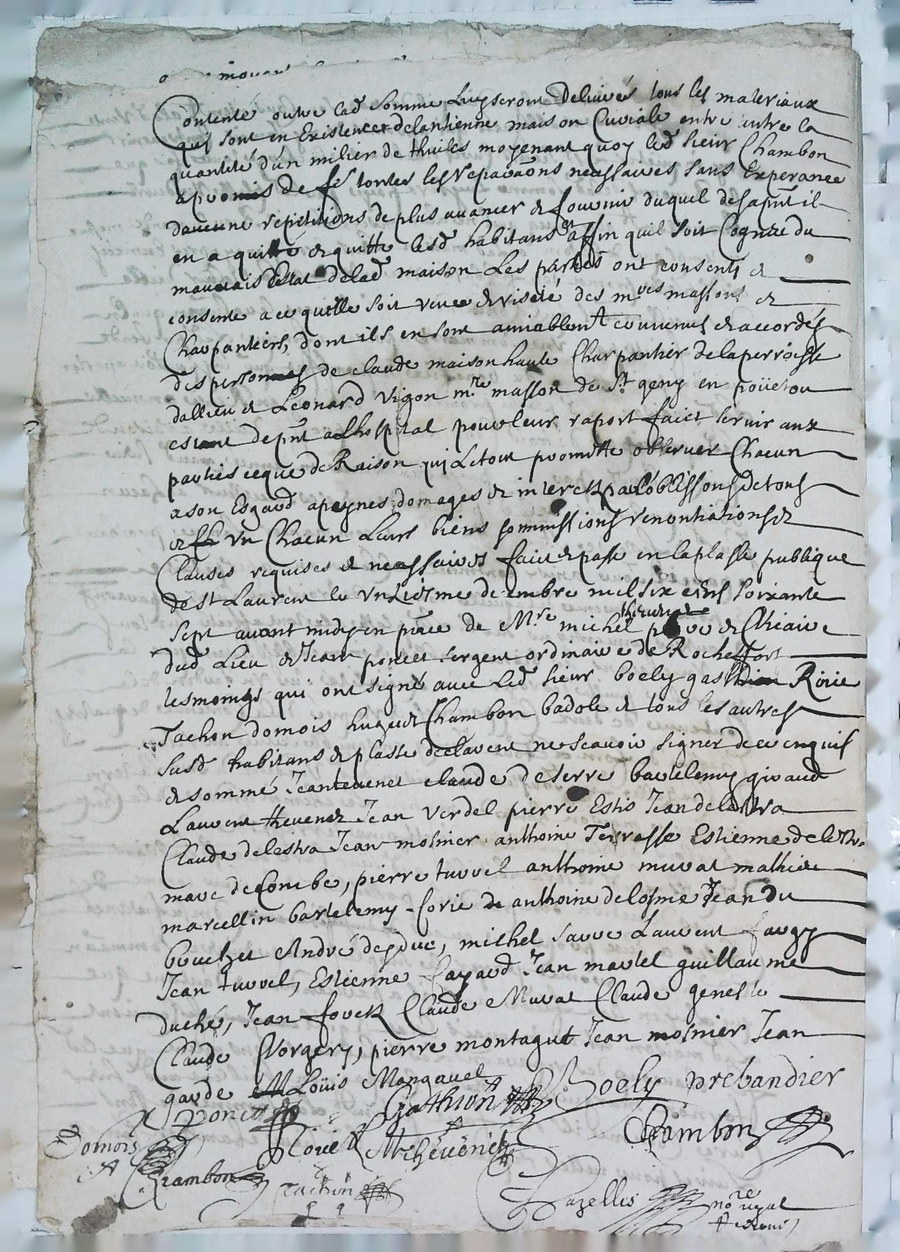 Contenté outre lad somme luy seront deluirés tous les materiaux
quy sont en Existence de lantienne maison Curiale entre autre la
quantité d'un milier de thuiles moyenant quoy led sieur Chambon
a promis de fe toutes les repaãons nessaires sans Experance
daucune repetitions de plus auancer & fournir duquel desapñt il
en a quitté & quitte lesd habitans affin quil soit Cognue du
mauuais Estat delad maison Les parties ont consenti &
consente a ce quelle soit veue & visité des mres massons &
Charpantiers, dont ils en sont amiablemt conuenus & accordés
des personnes de claude maison haute Charpantier de la perroisse
dallieu & Leonard Vigon mre masson de St geny en poüetou
estant de pñt a Lhospital pour leur raport faict seruir aux
parties ce que de Raison qui Le tout promitte obseruer Chacun
a son Esgard a peynes domages & interestz par obligãons de tous
& Vn Chacun Leurs biens sommissions renontiations &
Clauses requises & nessaires faict & passe en la plasse publique
de St Laurent le Vnziesme decembre mil six cens soixante
sept auant midy en pñce de Mre michel theuenet pbre & viCaire
dud Lieu & Jean poncet sergent ordinaire de Rocheffort
tesmoings qui ont signé auec Led sieur boely gas Rivie
Tachon domois huguet Chambon badole & tous les autres
susd habitans & plaste declarent ne scauoir signer de ce enquis
& sommé Jean teuenet claude deserre bartelemy giraud
Laurent theuenet Jean Verdel pierre Estio Jean delestra
Claude delestra Jean molinier anthoine Terrasse Estienne delestra
marc deCombe, pierre turrel anthoine murat mathieu
marcellin bartelemy forie & anthoine delosme Jean du
bouchet André depduc, michel sauve Laurent faugy
Jean turrel, Estienne fayard Jean martel guillaume
duché, Jean fouck Claude Murat Claude geneste
Claude Vorgery, pierre montagut Jean molinier Jean
garde Loüis Mangauel
poncet Mathiont Boely prebandier
Domois Roüe MTheuenet Chambon
Chambon Tachon Dazelles nore royal